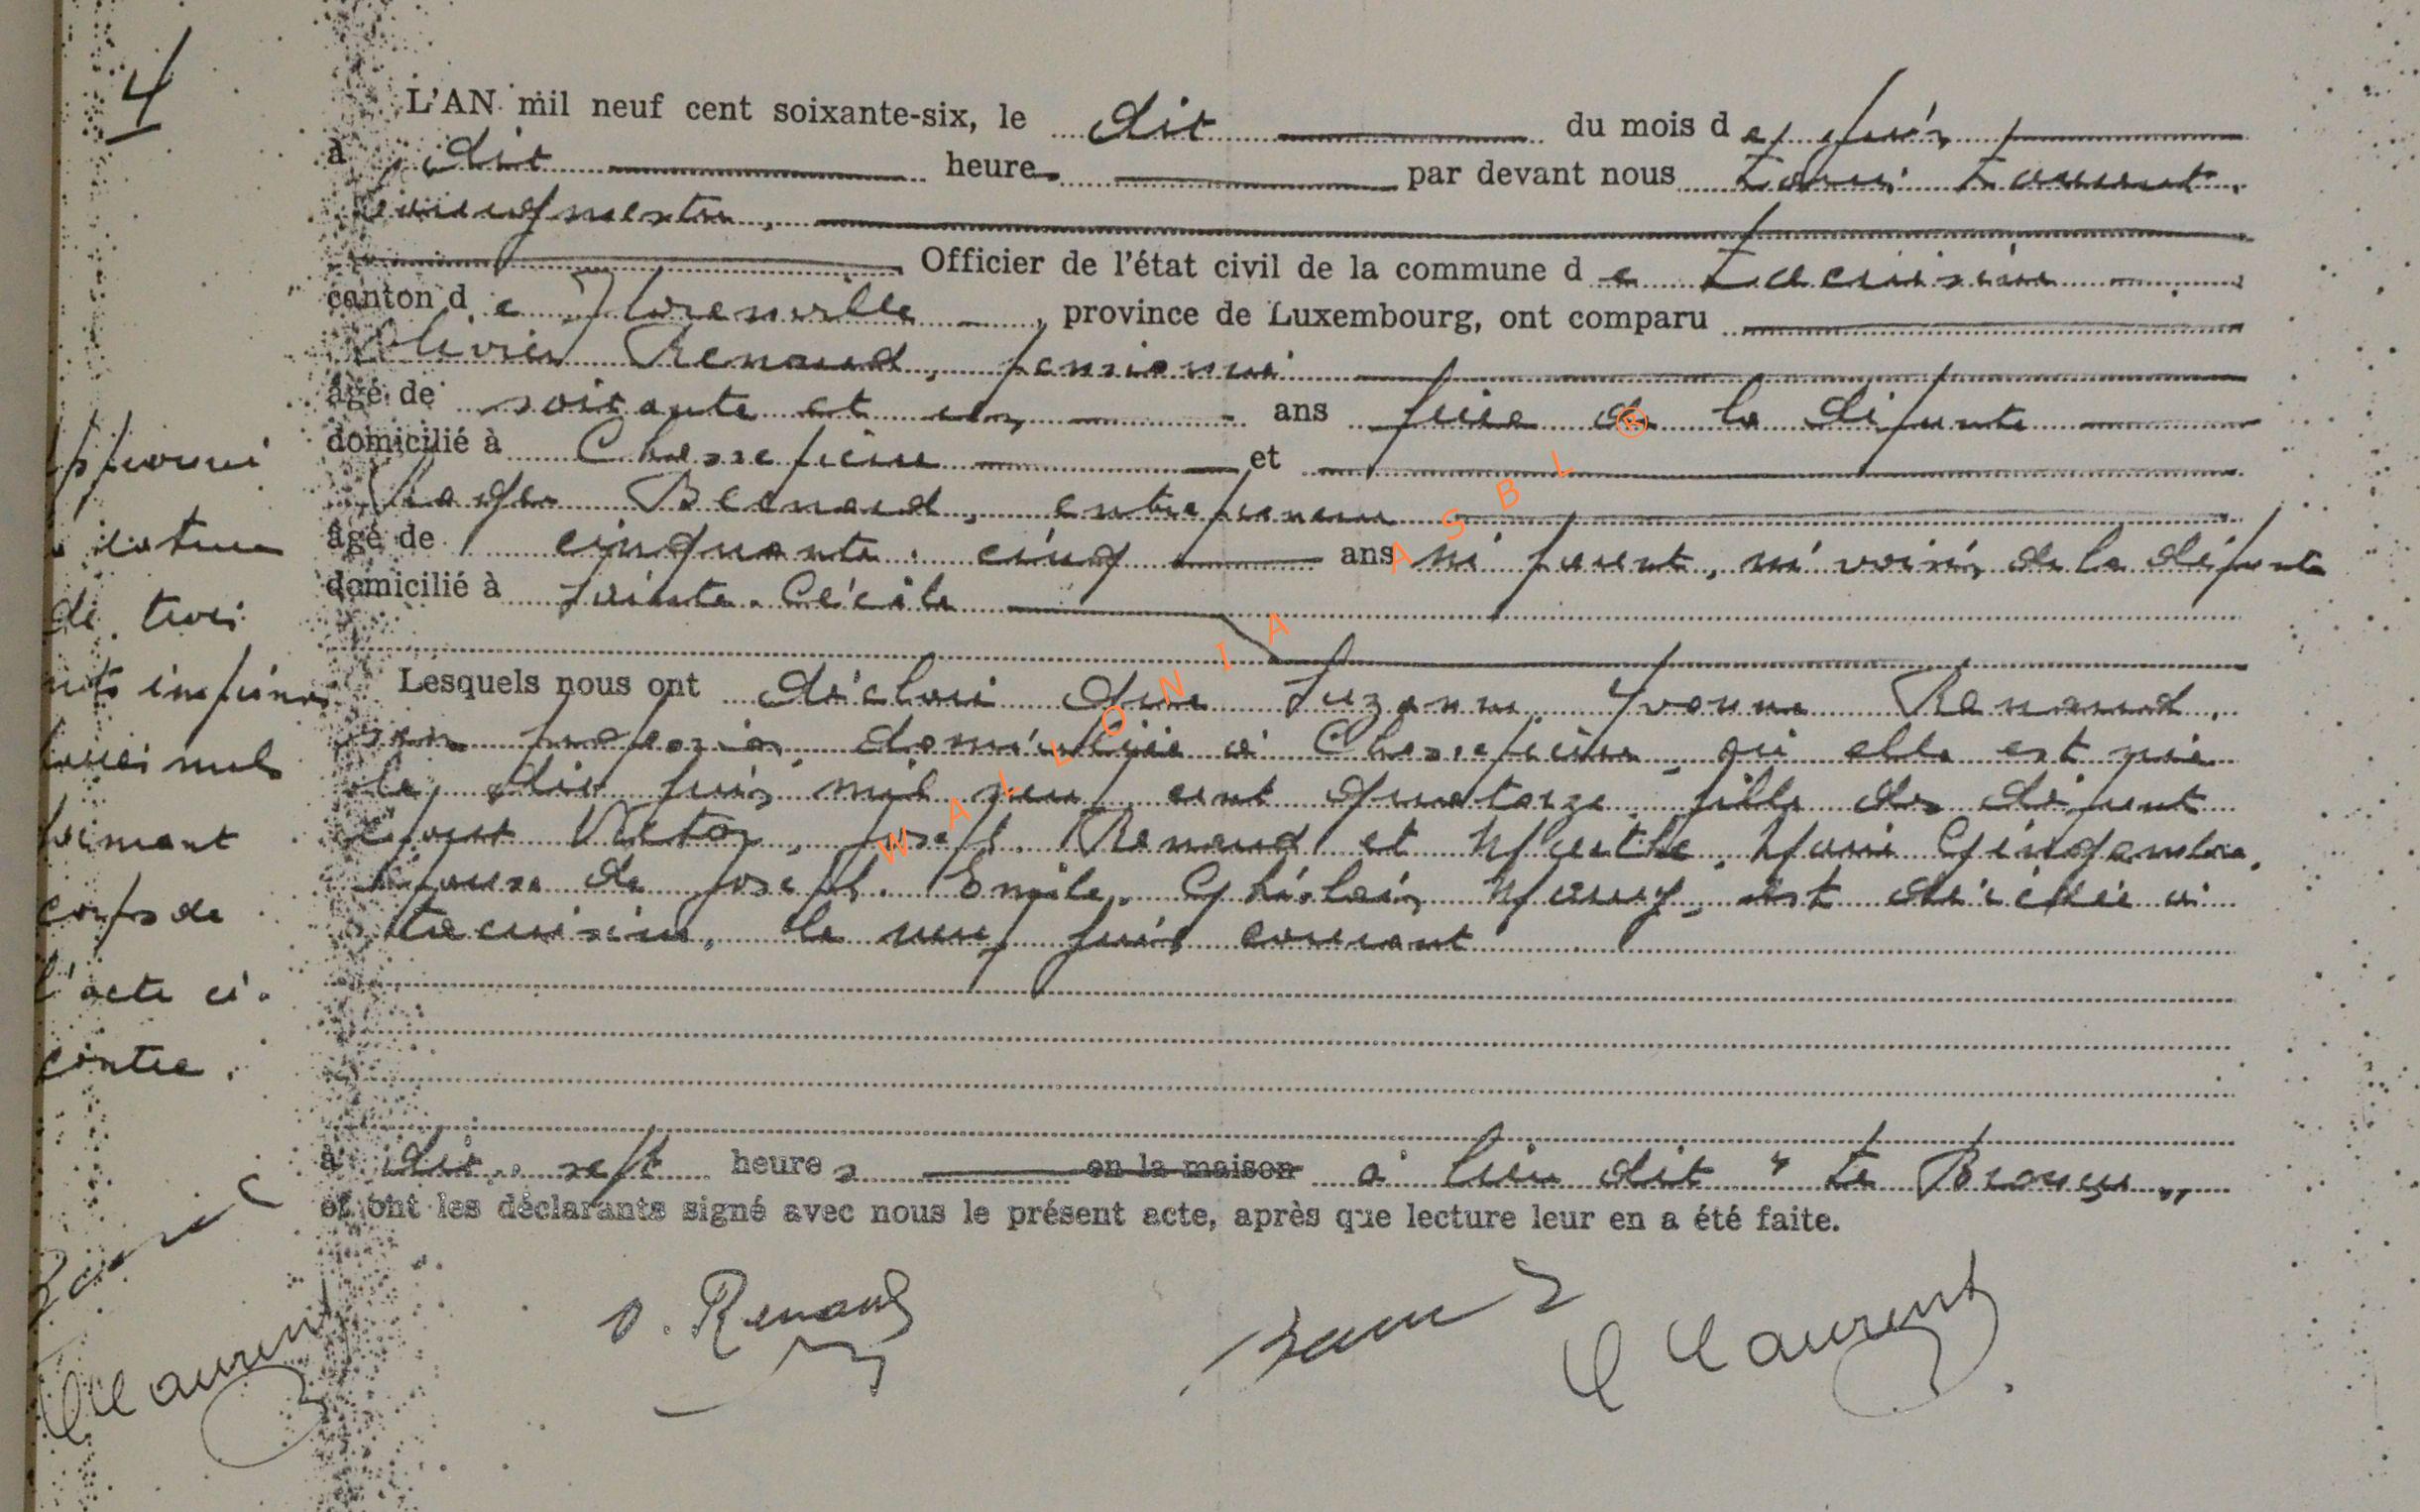 4
L'AN mil neuf cent soixante-six, le dix du mois de juin
à dix heure par devant nous Laurent,
bourgmestre,
Officier de l'état civil de la commune de Lacuisine
canton de Florenville, province de Luxembourg, ont comparu
Olivier Renaud, pensionné
âgé de soixante et un ans frère de la défunte
domicilié à Chassepierre et
Roger Bernard, entrepreneur
âgé de cinquante-cinq ans ni parent, ni voisin de la défunte
domicilié à Sainte-Cécile
Lesquels nous ont déclaré que Suzanne, Yvonne Renaud,
sans profession, domiciliée à Chassepierre, où elle est née
le dix juin mil neuf cent quatorze, fille des défunt
époux Victor, Joseph Renaud et Marthe, Marie Gingembre,
épouse de Joseph, Emile, Ghislain Maury, est décédée à
Lacuisine, le neuf juin courant
à dix-sept heures en la maison à lieu dit "Le Brouy"
et ont les déclarants signé avec nous le présent acte, après que lecture leur en a été faite.
O. Renaud
Laurent
pprouvé
a rature
de trois
mots imprimés
nuls
corps de
l'acte ci-
contre.
Laurent
WALLONIA ASBL
®